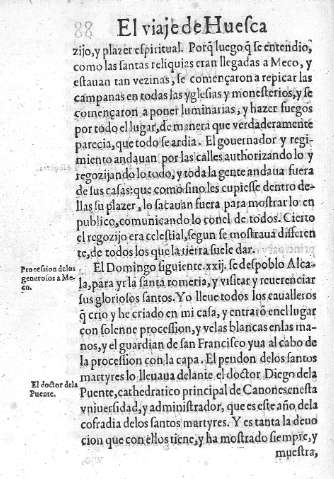 El viaje de Huesca
zijo, y plazer espiritual. Porq̃ luego q̃ se entendio,
como las santas reliquias eran llegadas a Meco, y
estauan tan vezinas, se començaron a repicar las
campanas en todas las yglesias y monesterios, y se
començaron a poner luminarias, y hazer fuegos
por todo el lugar, de manera que verdaderamente
parecia, que todo se ardia. El gouernador y regi-
miento andauan por las calles authorizando lo y
regozijando lo todo, y toda la gente andaua fuera
de sus casas: que como sino les cupiesse dentro de-
llas su plazer, lo sacauan fuera para mostrar lo en
publico, comunicando lo con el de todos. Cierto
el regozijo era celestial, segun se mostraua differen
te, de todos los que la tierra suele dar.
Procession de los
generosos a Me-
co.
El Domingo siguiente. xxij. se despoblo Alca-
la, para yr la santa romeria, y visitar y reuerenciar
sus gloriosos santos. Yo lleue todos los caualleros
q̃ crio y he criado en mi casa, y entrarõ en el lugar
con solenne procession, y velas blancas en las ma-
nos, y el guardian de san Francisco yua al cabo de
la procession con la capa. El pendon de los santos
martyres lo lleuaua delante el doctor Diego de la
El doctor dela
Puente.
Puente, cathedratico principal de Canones en esta
vniuersidad, y administrador, que es este año, de la
cofradia delos santos martyres. Y es tanta la deuo
cion que con ellos tiene, y ha mostrado siempre, y
muestra,